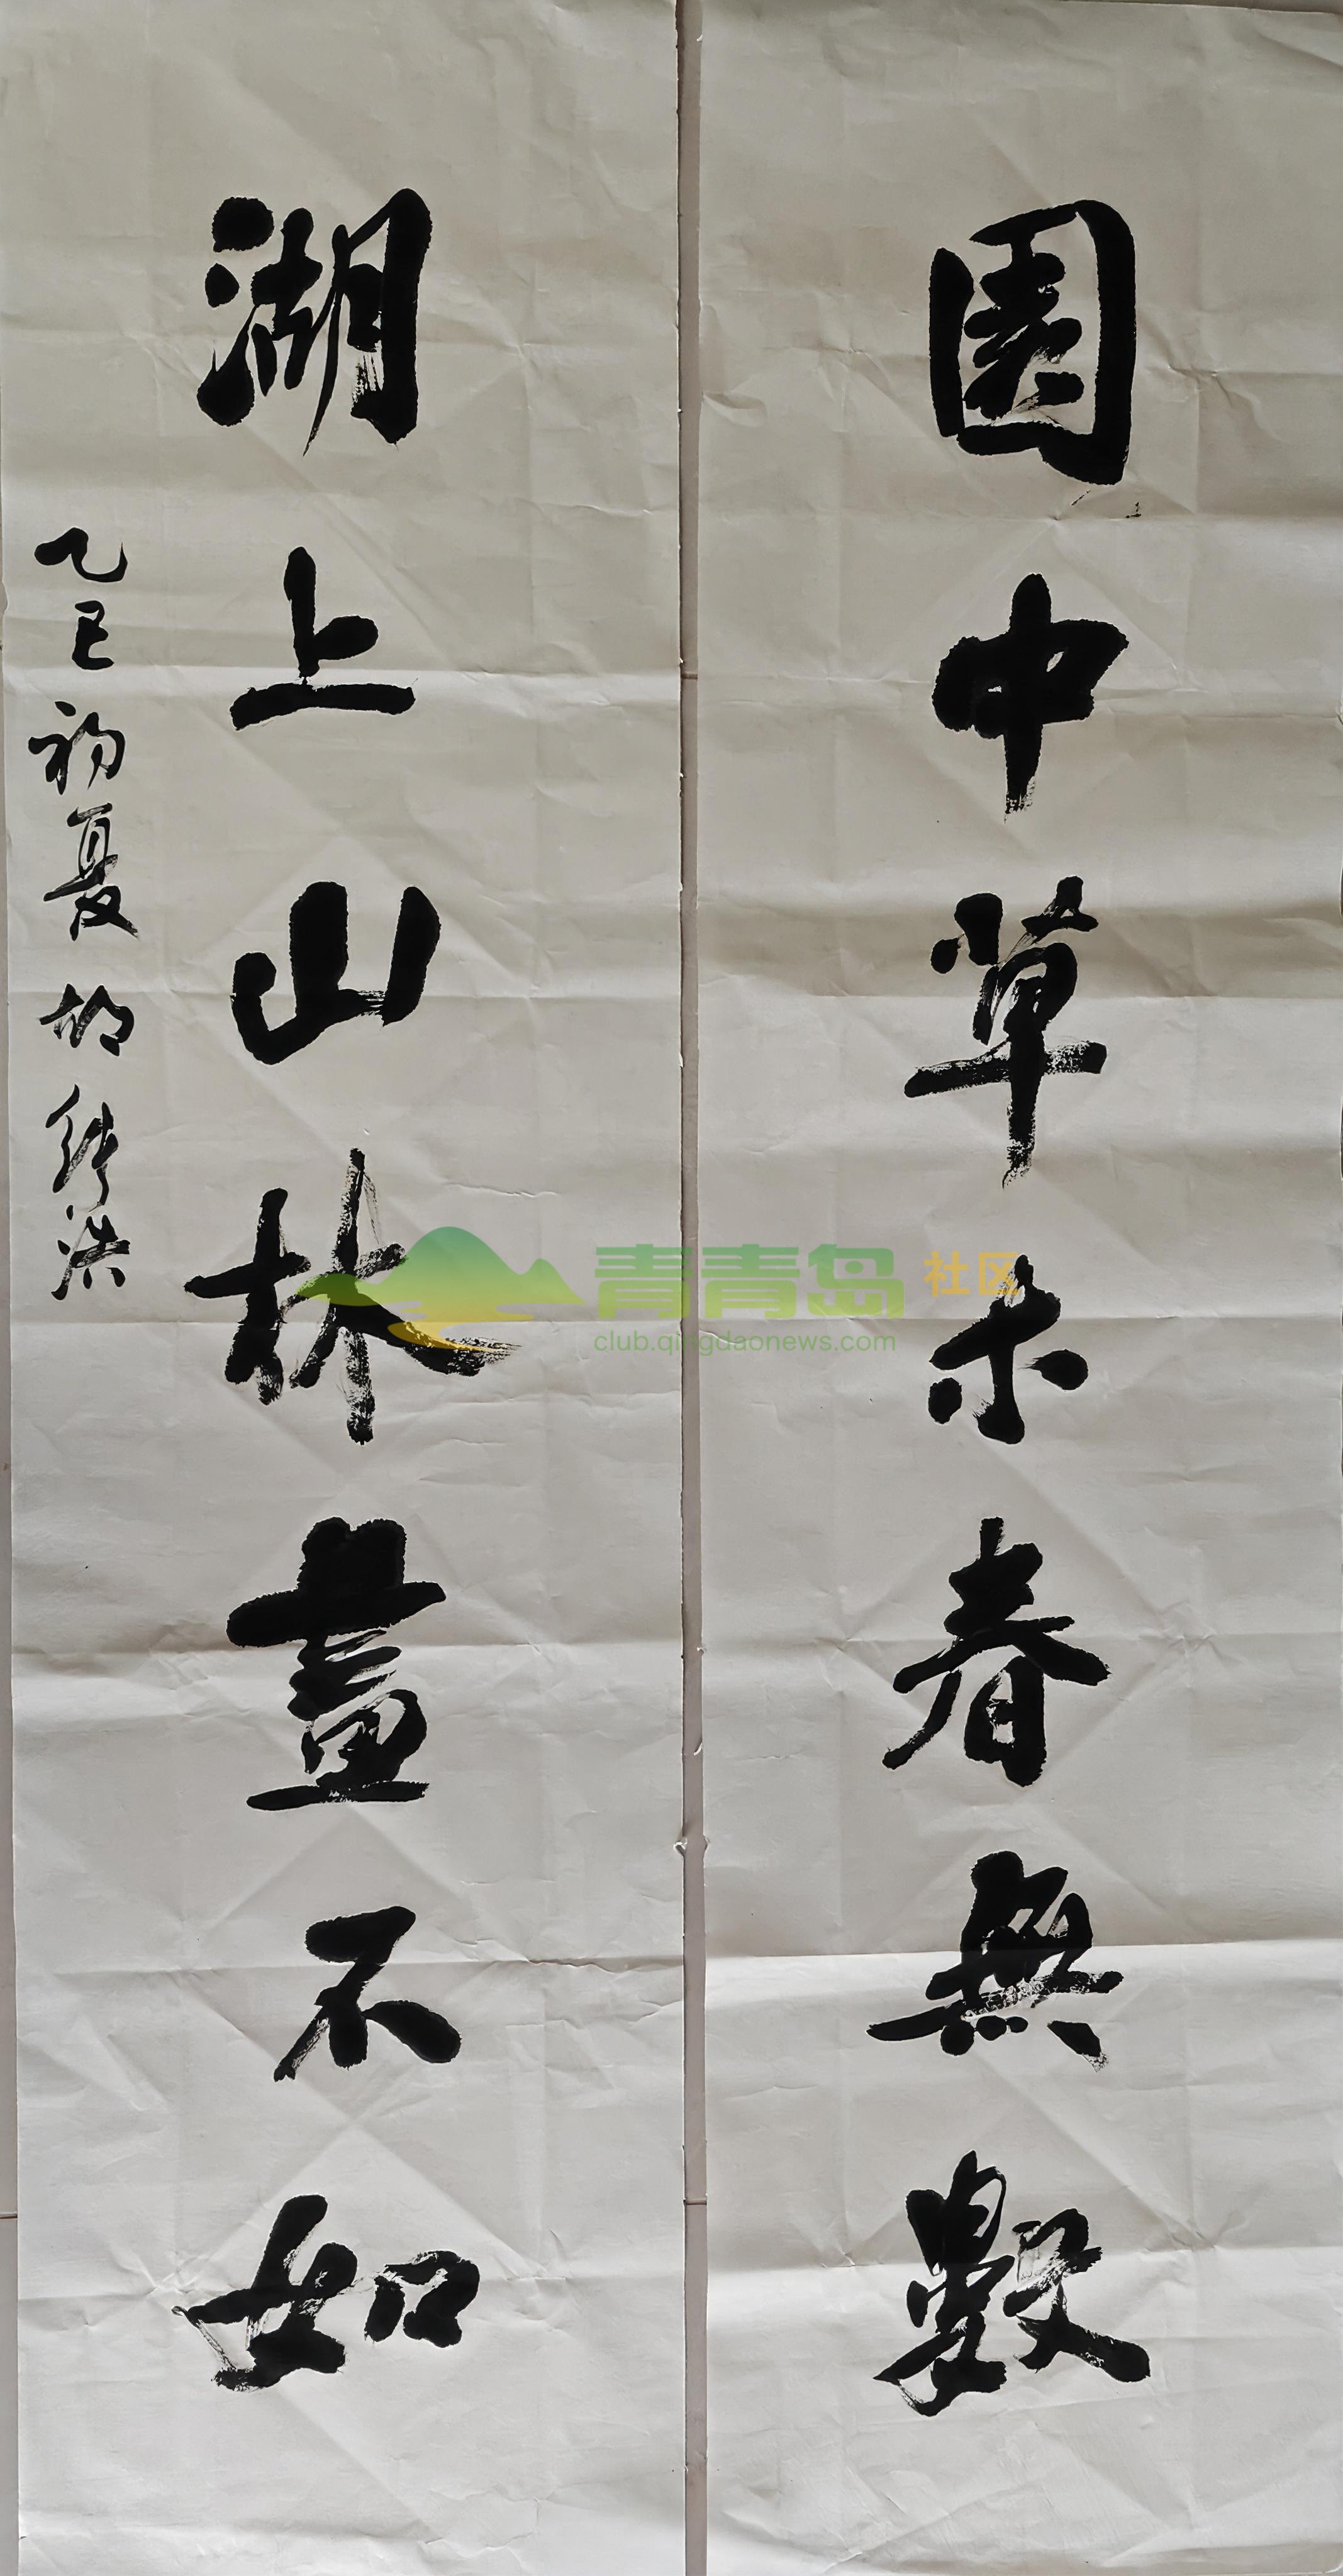 園中草木春無數
湖上山林畫不如
乙巳初夏胡
青青岛社区
club.qingdaonews.com